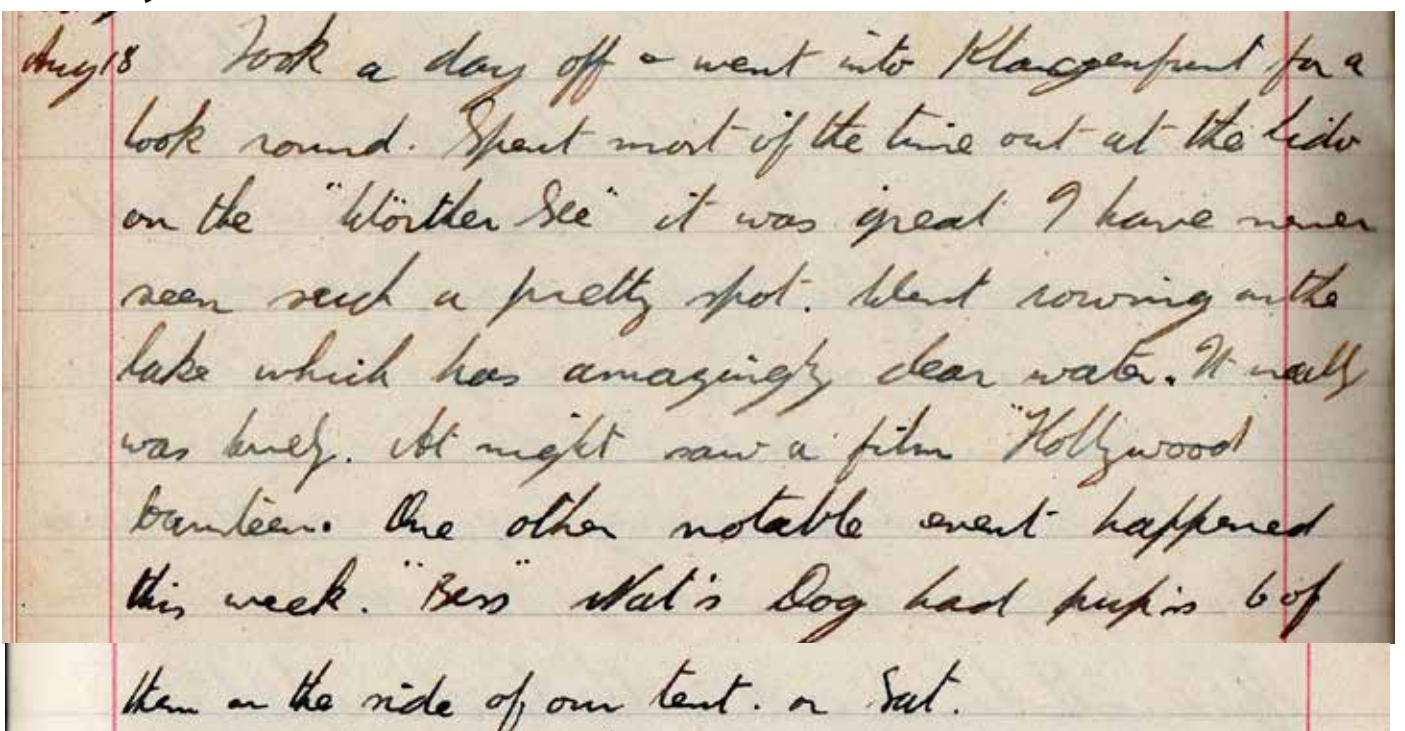 Aug 18 Took a day off & went into Klagenfurt for a
look round. Spent most of the time out at the Lido
on the "Wörther See" it was great I have never
seen such a pretty spot. Went rowing on the
lake which has amazingly clear water. It really
was lovely. At night saw a film "Hollywood
Canteen. One other notable event happened
this week. "Bess" Nat's Dog had pup's 6 of
them on the side of our tent. on Sat.